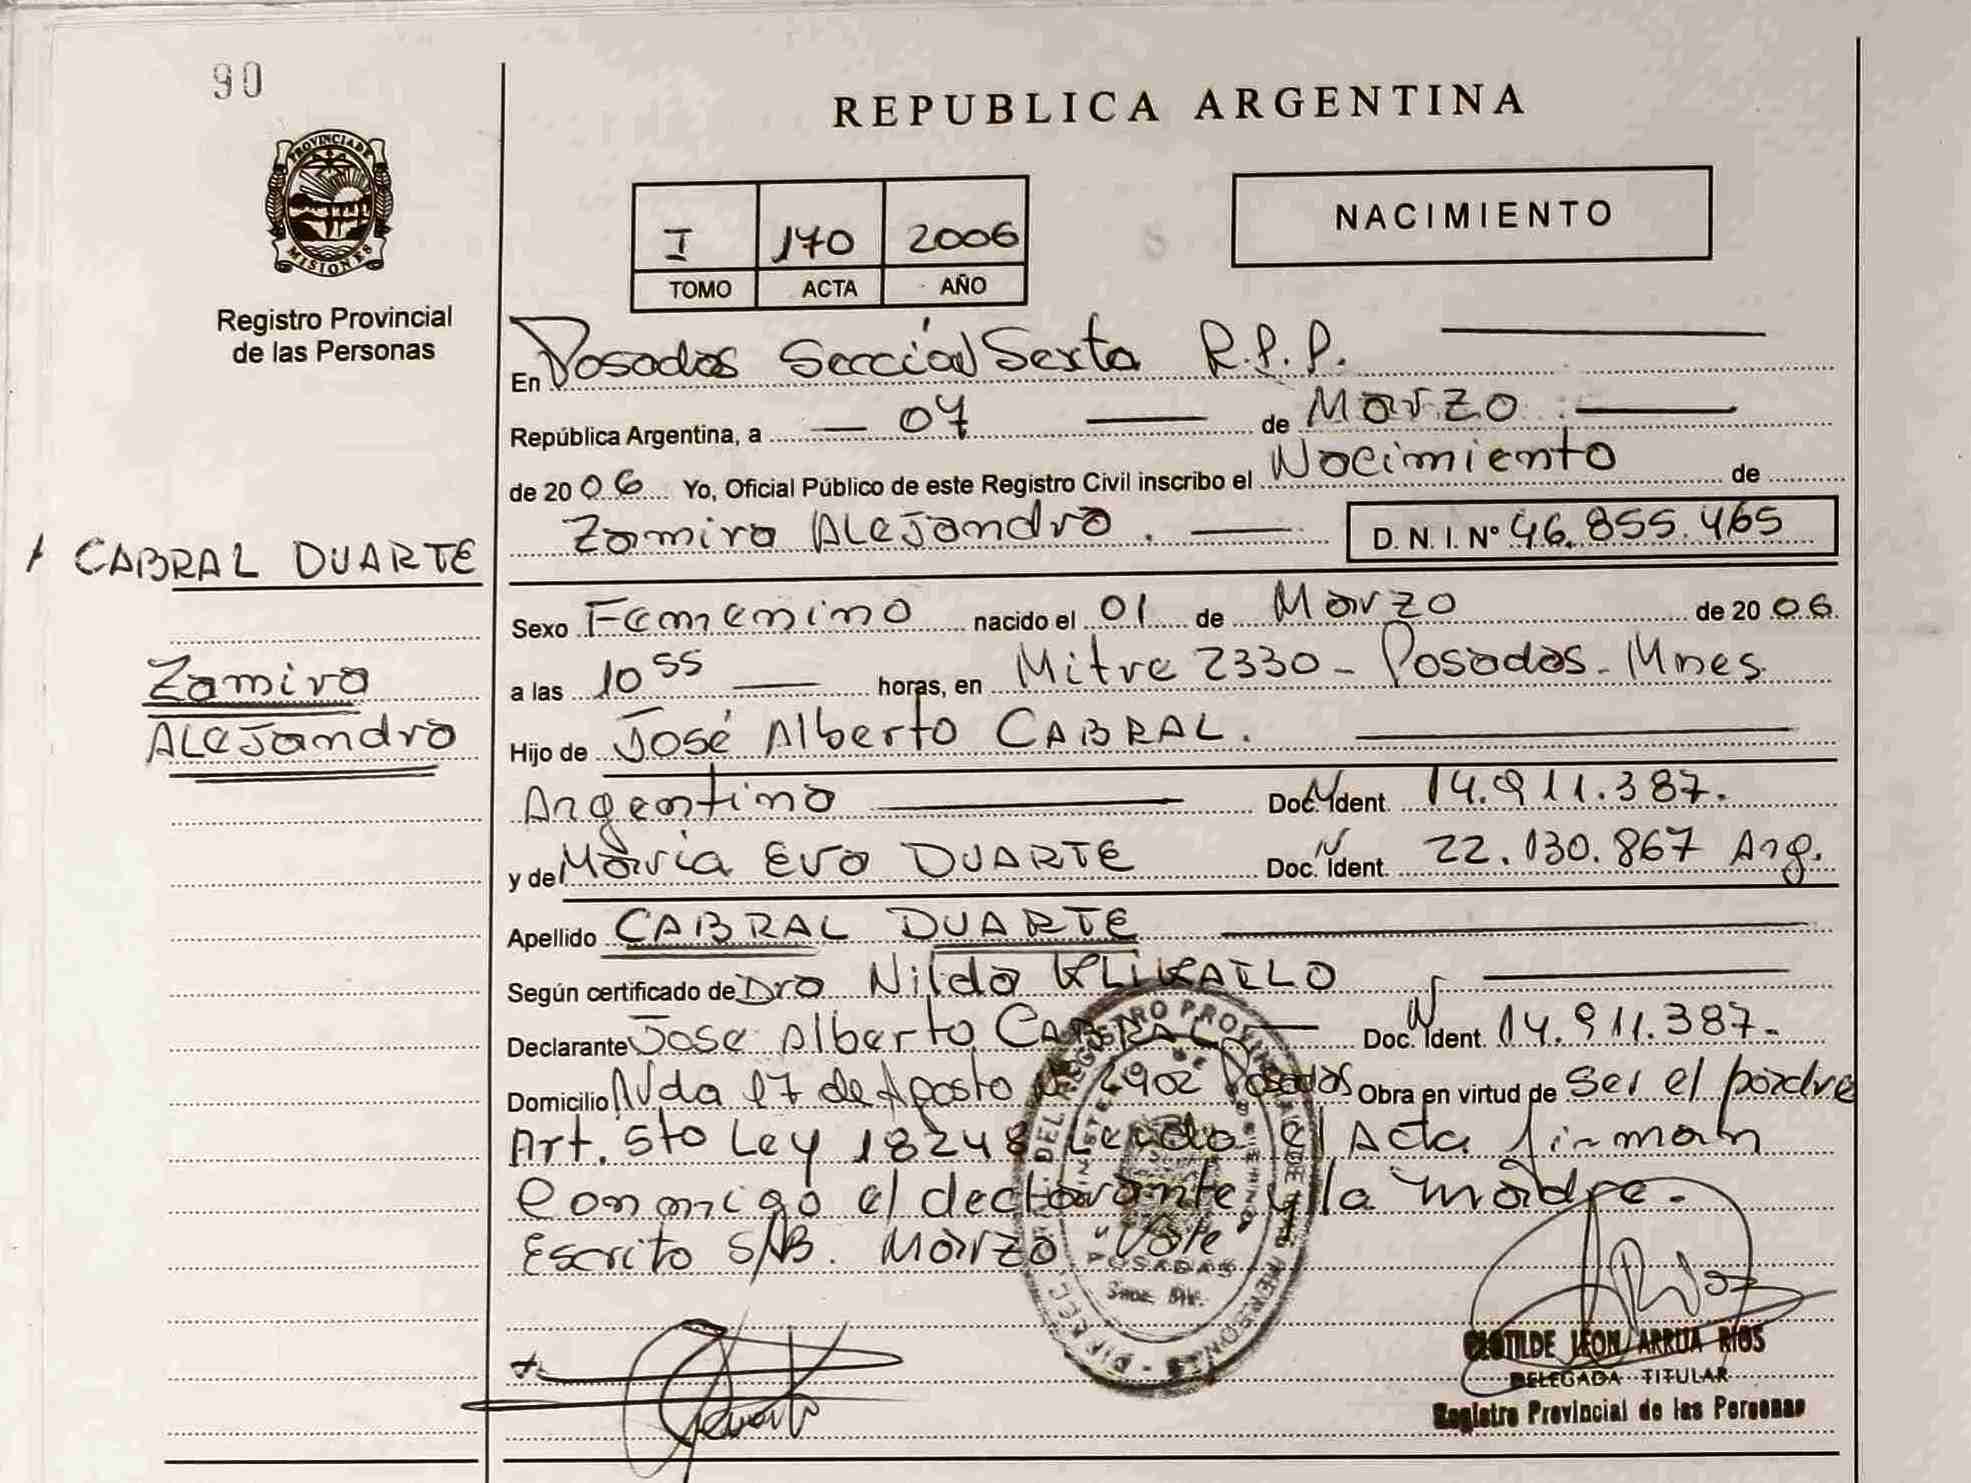 90
PROVINCIA DE
MISIONES
Registro Provincial
de las Personas
REPUBLICA ARGENTINA
I 170 2006
TOMO ACTA AÑO
NACIMIENTO
En Posadas Sección Sexta R.P.P.
República Argentina, a 07 de Marzo
de 2006 Yo, Oficial Público de este Registro Civil inscribo el Nacimiento de
Zamira Alejandra. D. N. I. Nº 46.855.465
CABRAL DUARTE
Zamira
Alejandra
Sexo Femenino nacido el 01 de Marzo de 2006.
a las 10 55 horas, en Mitre 2330 - Posadas - Mnes.
Hijo de José Alberto CABRAL.
Argentino Doc. Ident. 14.911.387.
y de María Eva DUARTE Doc. Ident. 22.130.867 Arg.
Apellido CABRAL DUARTE
Según certificado de Dra Nilda
Declarante José Alberto CABRAL Doc. Ident. 14.911.387.
Domicilio Avda 17 de Agosto 2902 Posadas Obra en virtud de Ser el padre
Art. 5to Ley 18248 Leida el Acta firman
conmigo el declarante y la madre.
Escrito S/B. Marzo "Vale"
POSADAS
CLOTILDE LEON ARRUA RIOS
DELEGADA TITULAR
Registro Provincial de las Personas